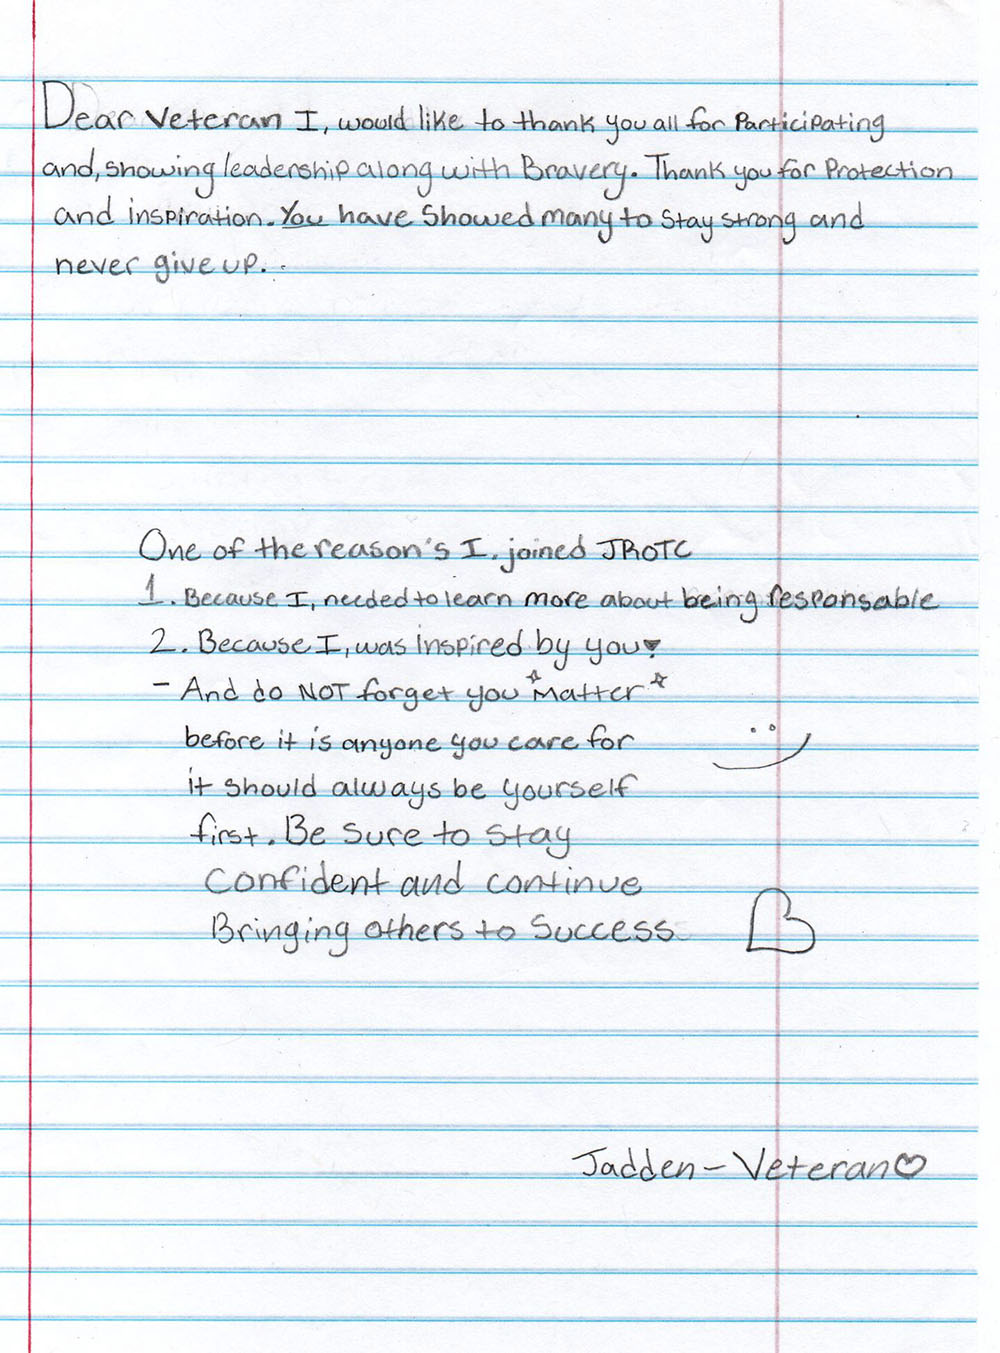 Dear Veteran I, would like to thank you all for Participating
and, showing leadership along with Bravery. Thank you for Protection
and inspiration. You have Showed many to Stay strong and
never give up..
One of the reason's I, joined JROTC
1. Because I, needed to learn more about being responsable
2. Because I, was inspired by you!
- And do NOT forget you *Matter*
before it is anyone you care for
it should always be yourself
first. Be Sure to Stay
Confident and continue
Bringing others to Success
Jadden - Veteran♡